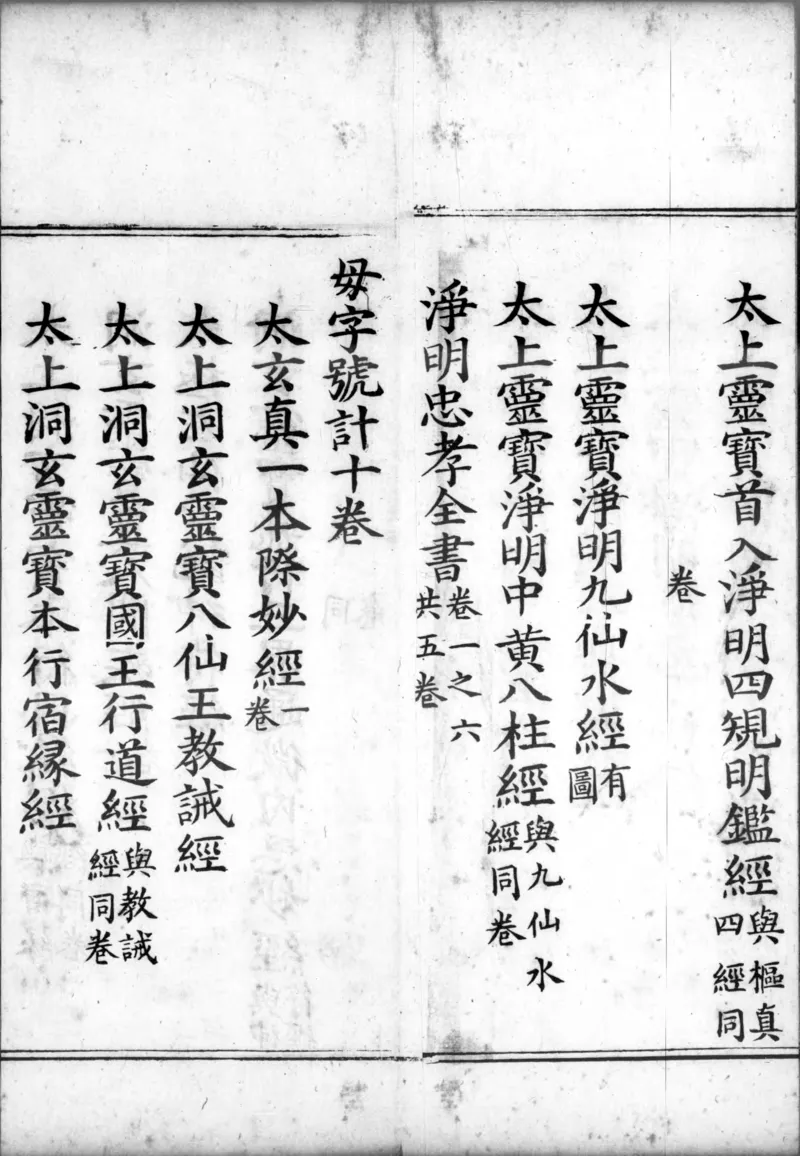 太上靈寶首入淨明四規明鑑經與樞真四經同
卷
太上靈寶淨明九仙水經有圖
太上靈寶淨明中黄八柱經與九仙水經同卷
淨明忠孝全書卷一之六共五卷
毋字號計十卷
太玄真一本際妙經一卷
太上洞玄靈寶八仙王教誡經
太上洞玄靈寶國王行道經與教誡經同卷
太上洞玄靈寶本行宿緣經